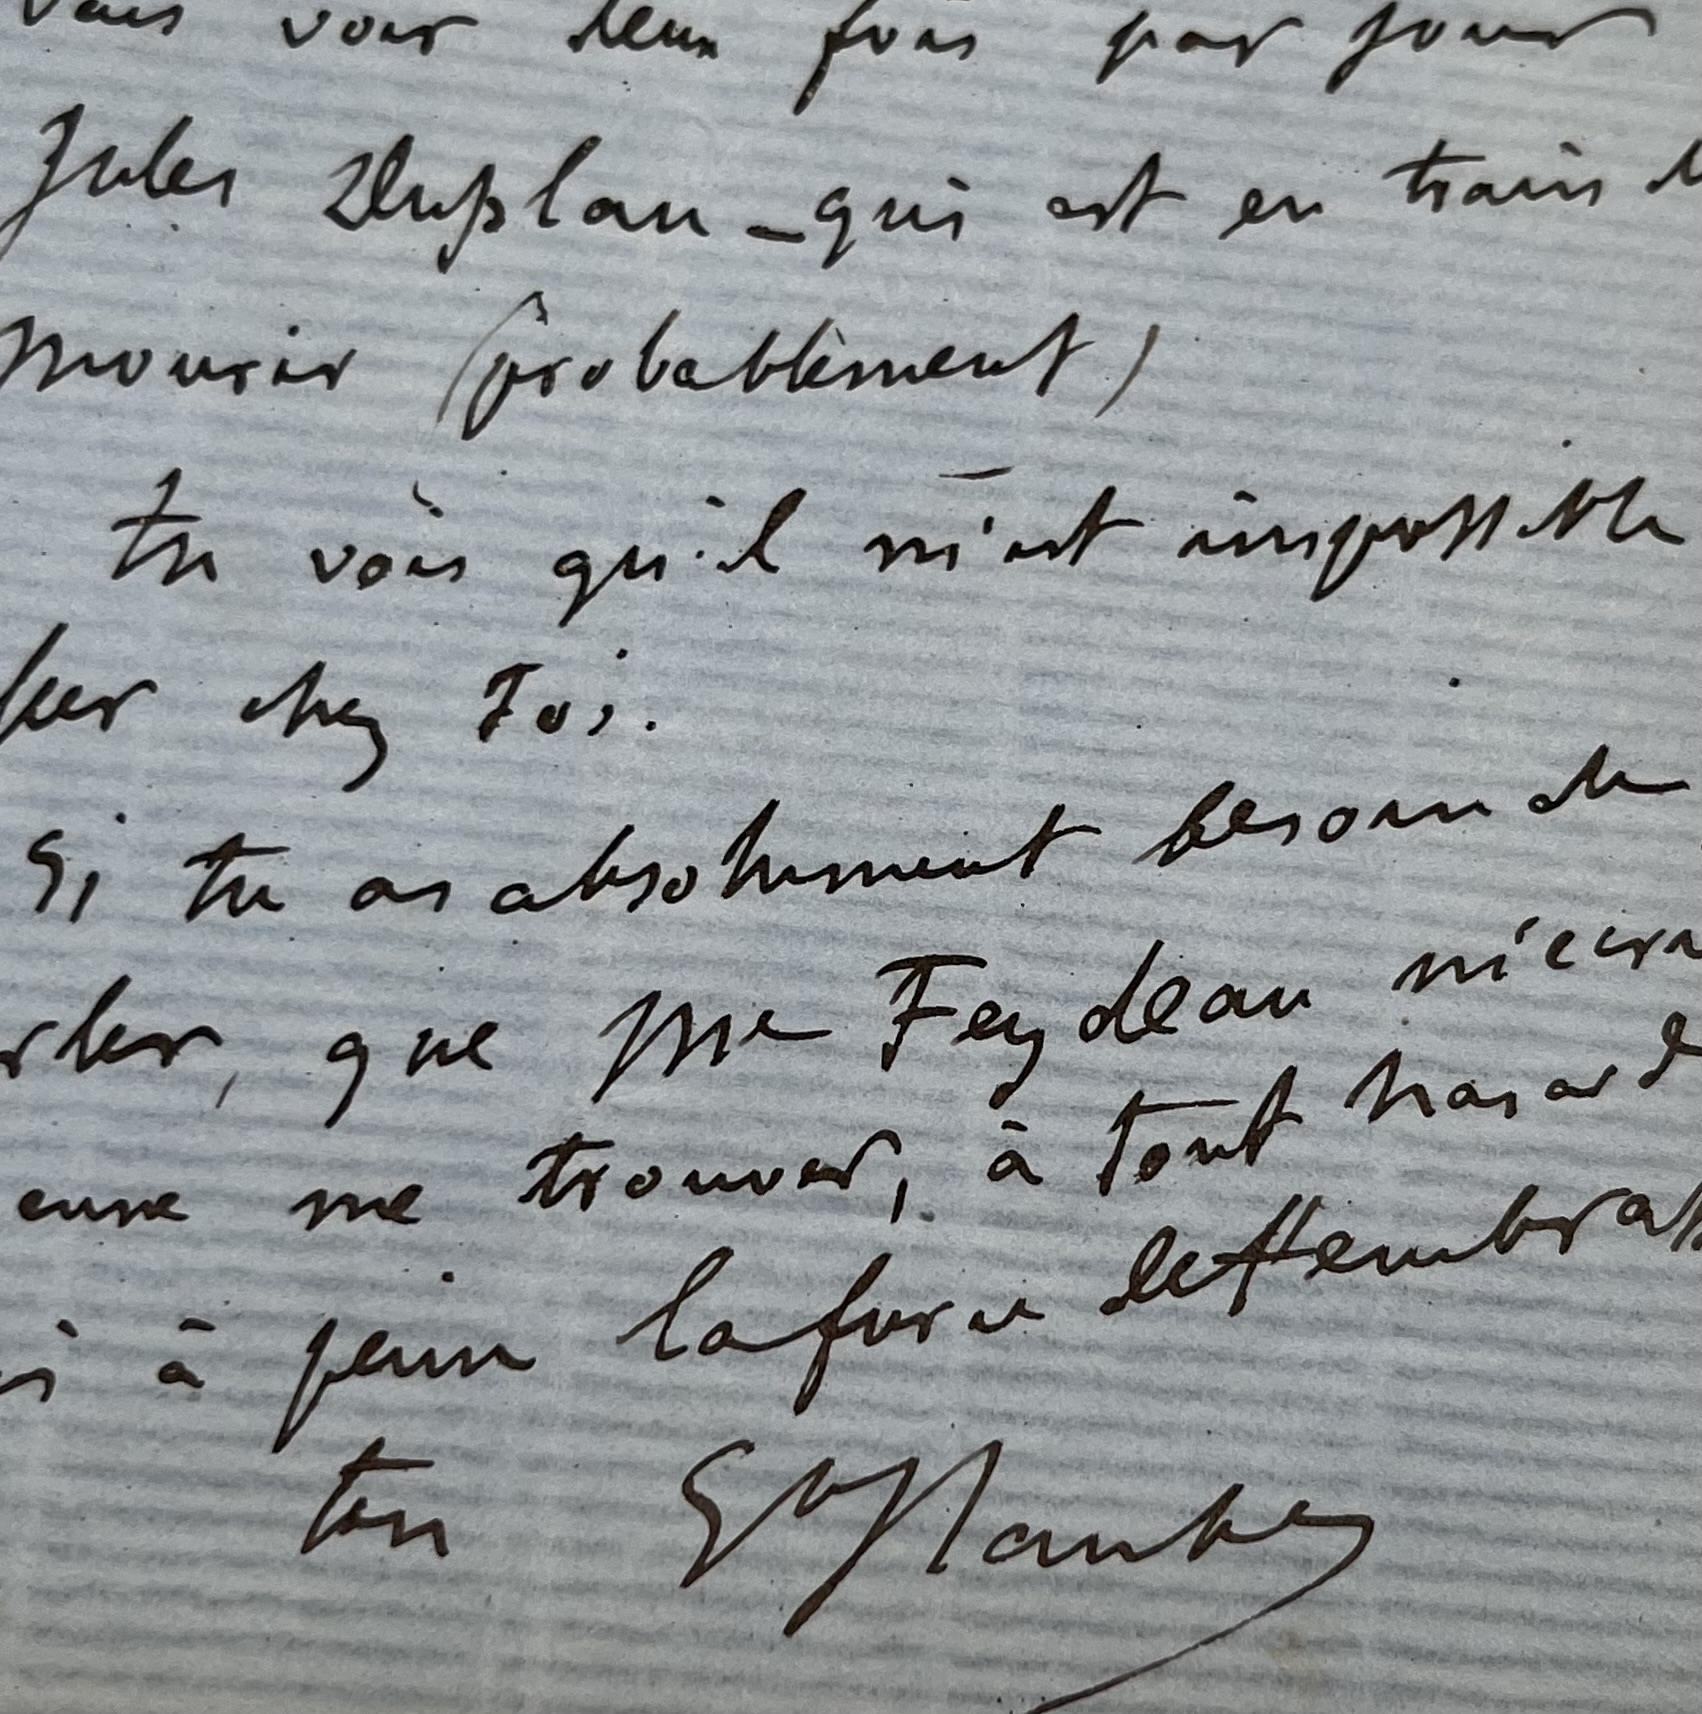 vais voir deux fois par jour
Jules Duplan - qui est en train d
mourir (probablement)
tu vois qu'il m'est impossible
ller chez Toi.
Si tu as absolument besoin de
rler, que Me Feydeau m'écri
eure me trouver, à tout hasard
à peine la force de t'embrass
ton Gve Flaubert